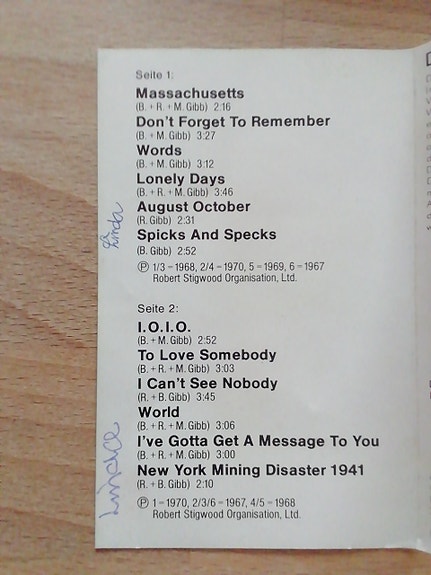 Seite 1:
Massachusetts
(B. + R. + M. Gibb) 2:16
Don't Forget To Remember
(B. + M. Gibb) 3:27
Words
(B. + M. Gibb) 3:12
Lonely Days
(B. + R. + M. Gibb) 3:46
August October
(R. Gibb) 2:31
Spicks And Specks
(B. Gibb) 2:52
Ⓟ 1/3 – 1968, 2/4 – 1970, 5 – 1969, 6 – 1967
Robert Stigwood Organisation, Ltd.
Linda
Seite 2:
I.O.I.O.
(B. + M. Gibb) 2:52
To Love Somebody
(B. + M. Gibb) 3:03
I Can't See Nobody
(R. + B. Gibb) 3:45
World
(B. + R. + M. Gibb) 3:06
I've Gotta Get A Message To You
(B. + R. + M. Gibb) 3:00
New York Mining Disaster 1941
(R. + B. Gibb) 2:10
Ⓟ 1 – 1970, 2/3/6 – 1967, 4/5 – 1968
Robert Stigwood Organisation, Ltd.